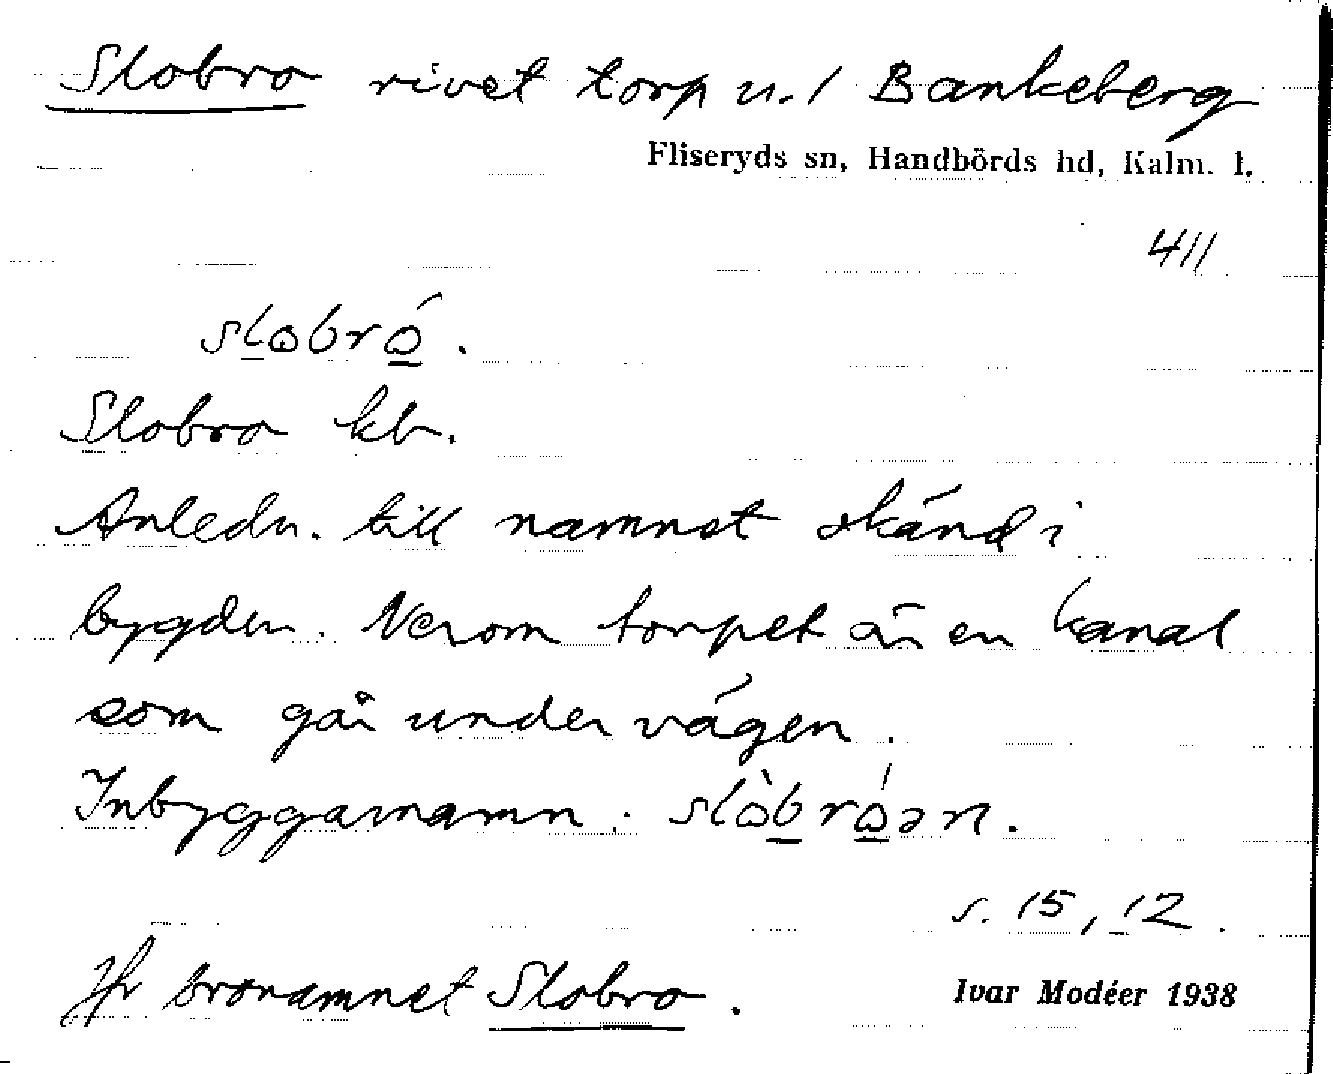 Slobro rivet torp u. / Bankeberg
Fliseryds sn, Handbörds hd, Kalm. l.
411
slobró.
Slobro kb.
Anledn. till namnet okänd i
bygden. Norom torpet är en kanal
som går under vägen.
Inbyggarnamn: slòbróən.
s. 15, 12.
Jfr bronamnet Slobro.
Ivar Modéer 1938